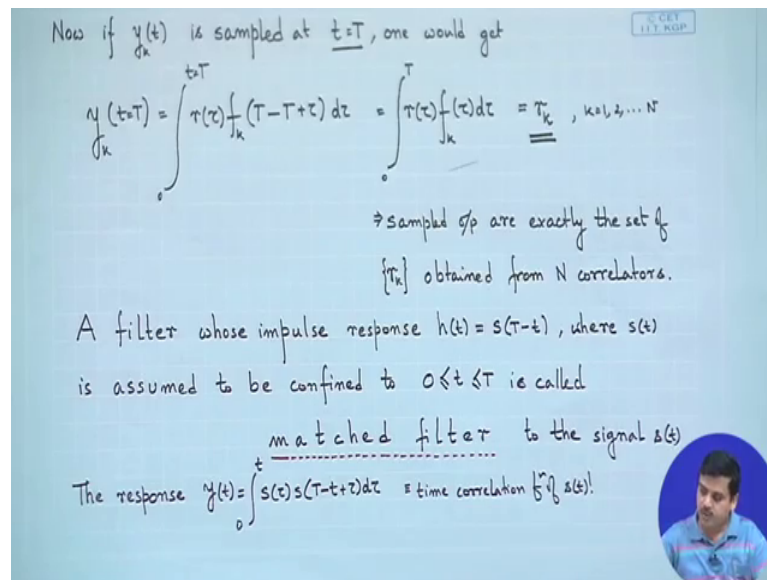 Now if y_k(t) is sampled at t=T, one would get
© CET
I.I.T. KGP
y_k(t=T) = ∫_0^{t=T} r(τ) f_k(T-T+τ) dτ = ∫_0^T r(τ) f_k(τ) dτ = r_k , k=1, 2, ... N
⇒ sampled o/p are exactly the set of
{r_k} obtained from N correlators.
A filter whose impulse response h(t) = s(T-t), where s(t)
is assumed to be confined to 0≤t≤T is called
matched filter to the signal s(t)
The response y(t) = ∫_0^t s(τ) s(T-t+τ) dτ ≡ time correlation fⁿ of s(t)!